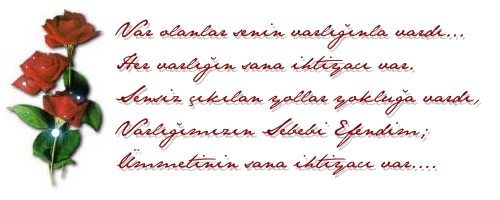 Var olanlar senin varlığınla vardı...
Her varlığın sana ihtiyacı var.
Sensiz çıkılan yollar yokluğa vardı,
Varlığımızın Sebebi Efendim;
Ümmetinin sana ihtiyacı var....